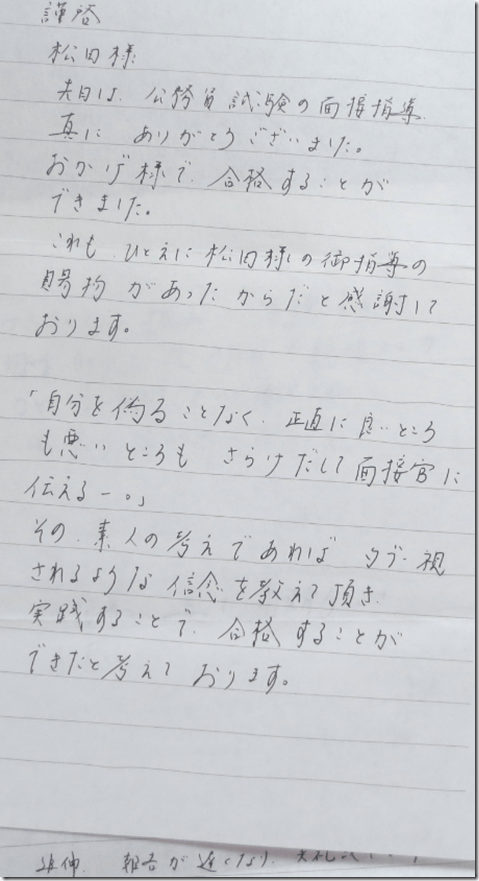 謹啓
松田様
先日は、公務員試験の面接指導、
真に ありがとうございました。
おかげ様で、合格することが
できました。
これも、ひとえに松田様の御指導の
賜物があったからだと感謝して
おります。
「自分を偽ることなく、正直に良いところ
も悪いところも さらけだして面接官に
伝えるー。」
その、素人の考えであれば タブー視
されるような信念を教えて頂き、
実践することで、合格することが
できたと考えて おります。
追伸、報告が遅くなり、失礼